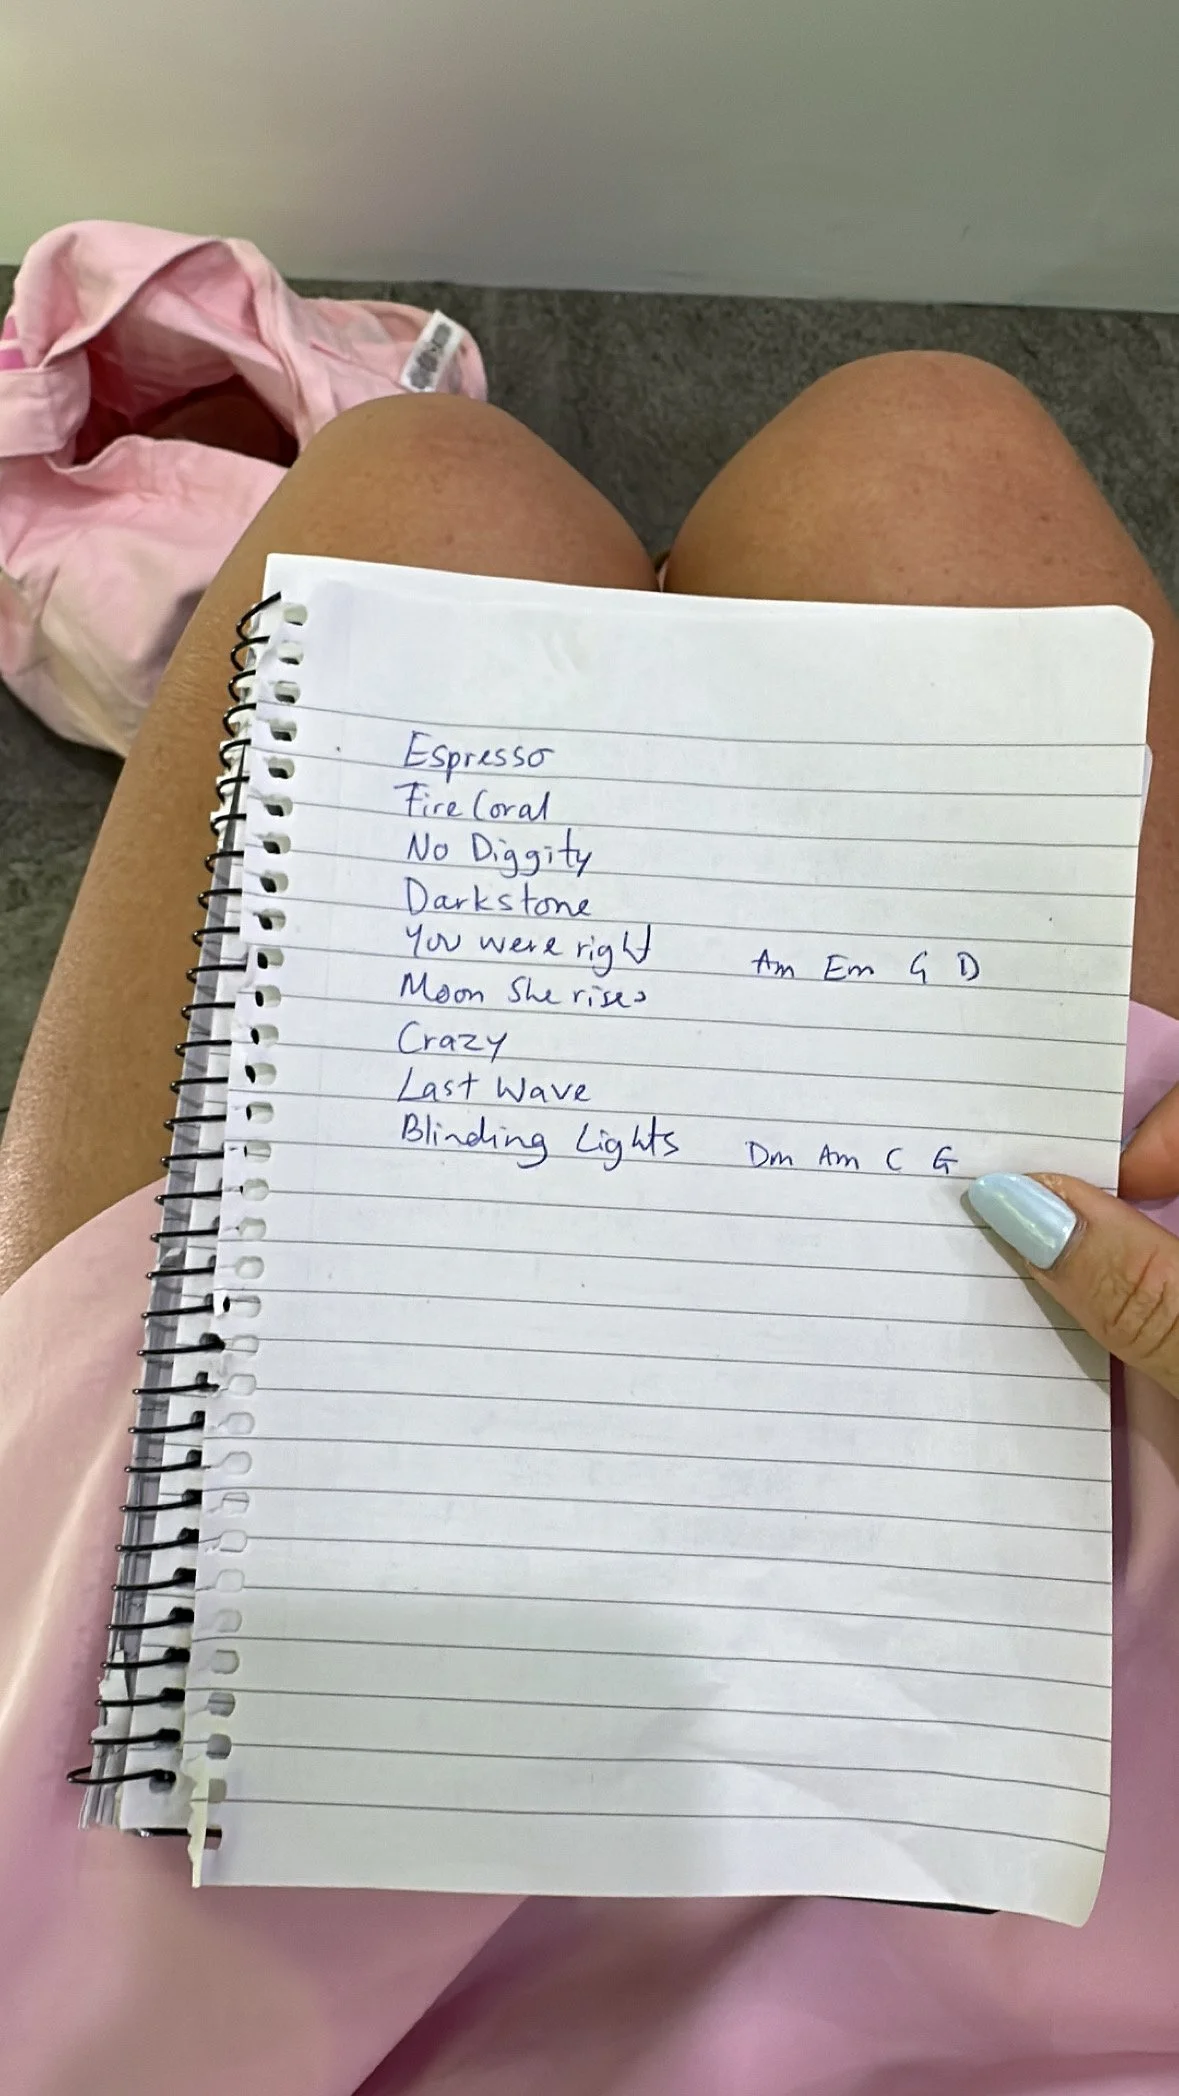 Espresso
Fire Coral
No Diggity
Darkstone
You were right Am Em G D
Moon She rises
Crazy
Last Wave
Blinding Lights Dm Am C G